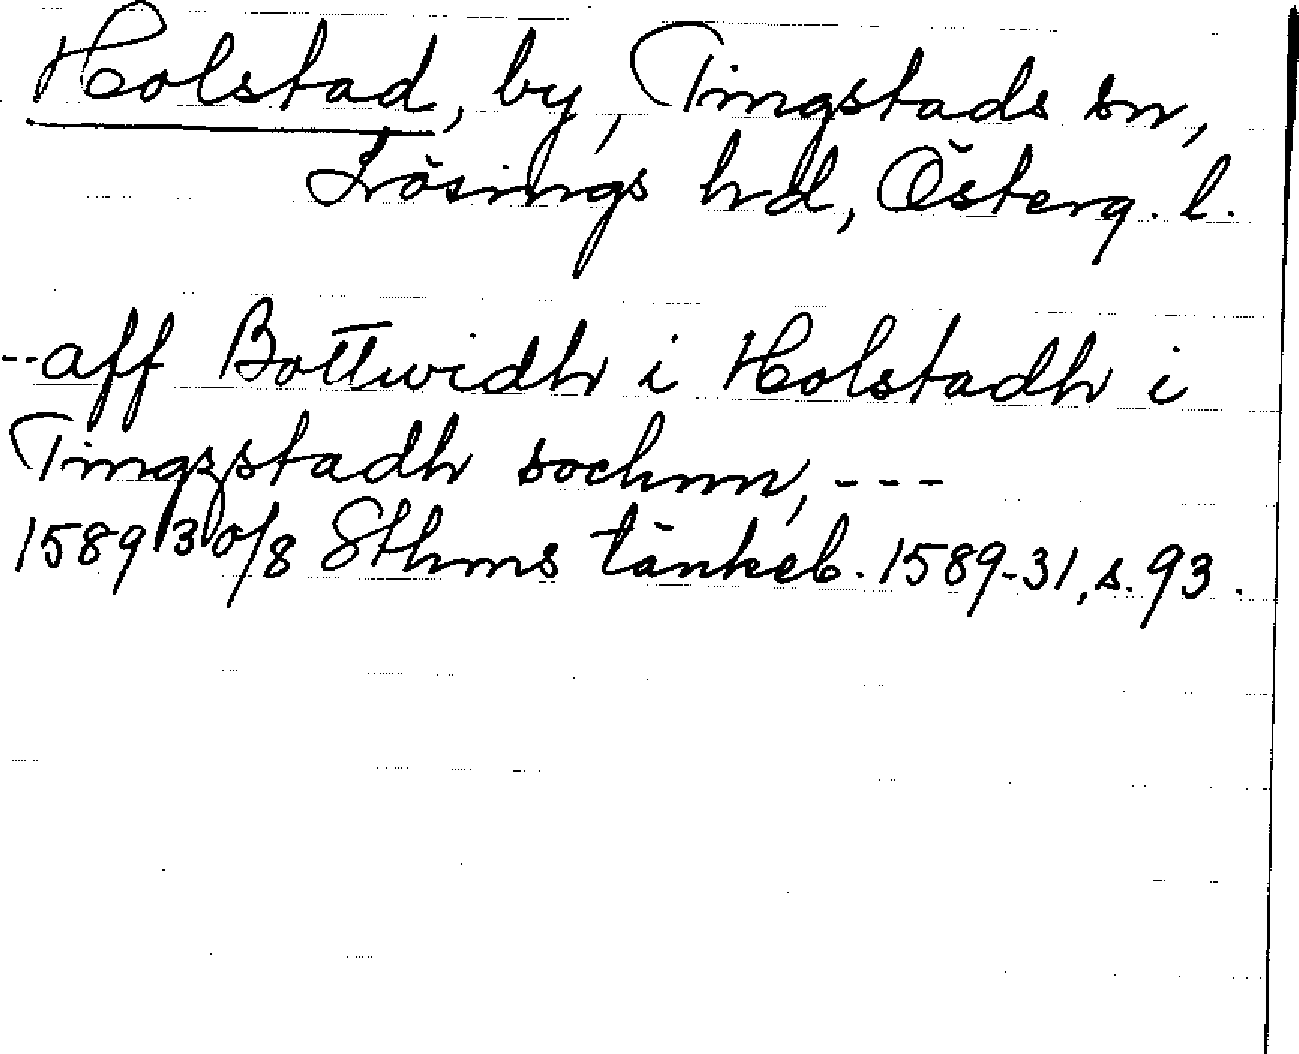 Holstad, by, Tingstads sn,
Lösings hd, Österg. l.
--aff Bottwidh i Holstadh i
Tingzstadh sochnn, ---
1589 30/8 Sthms tänkeb. 1589-31, s. 93.